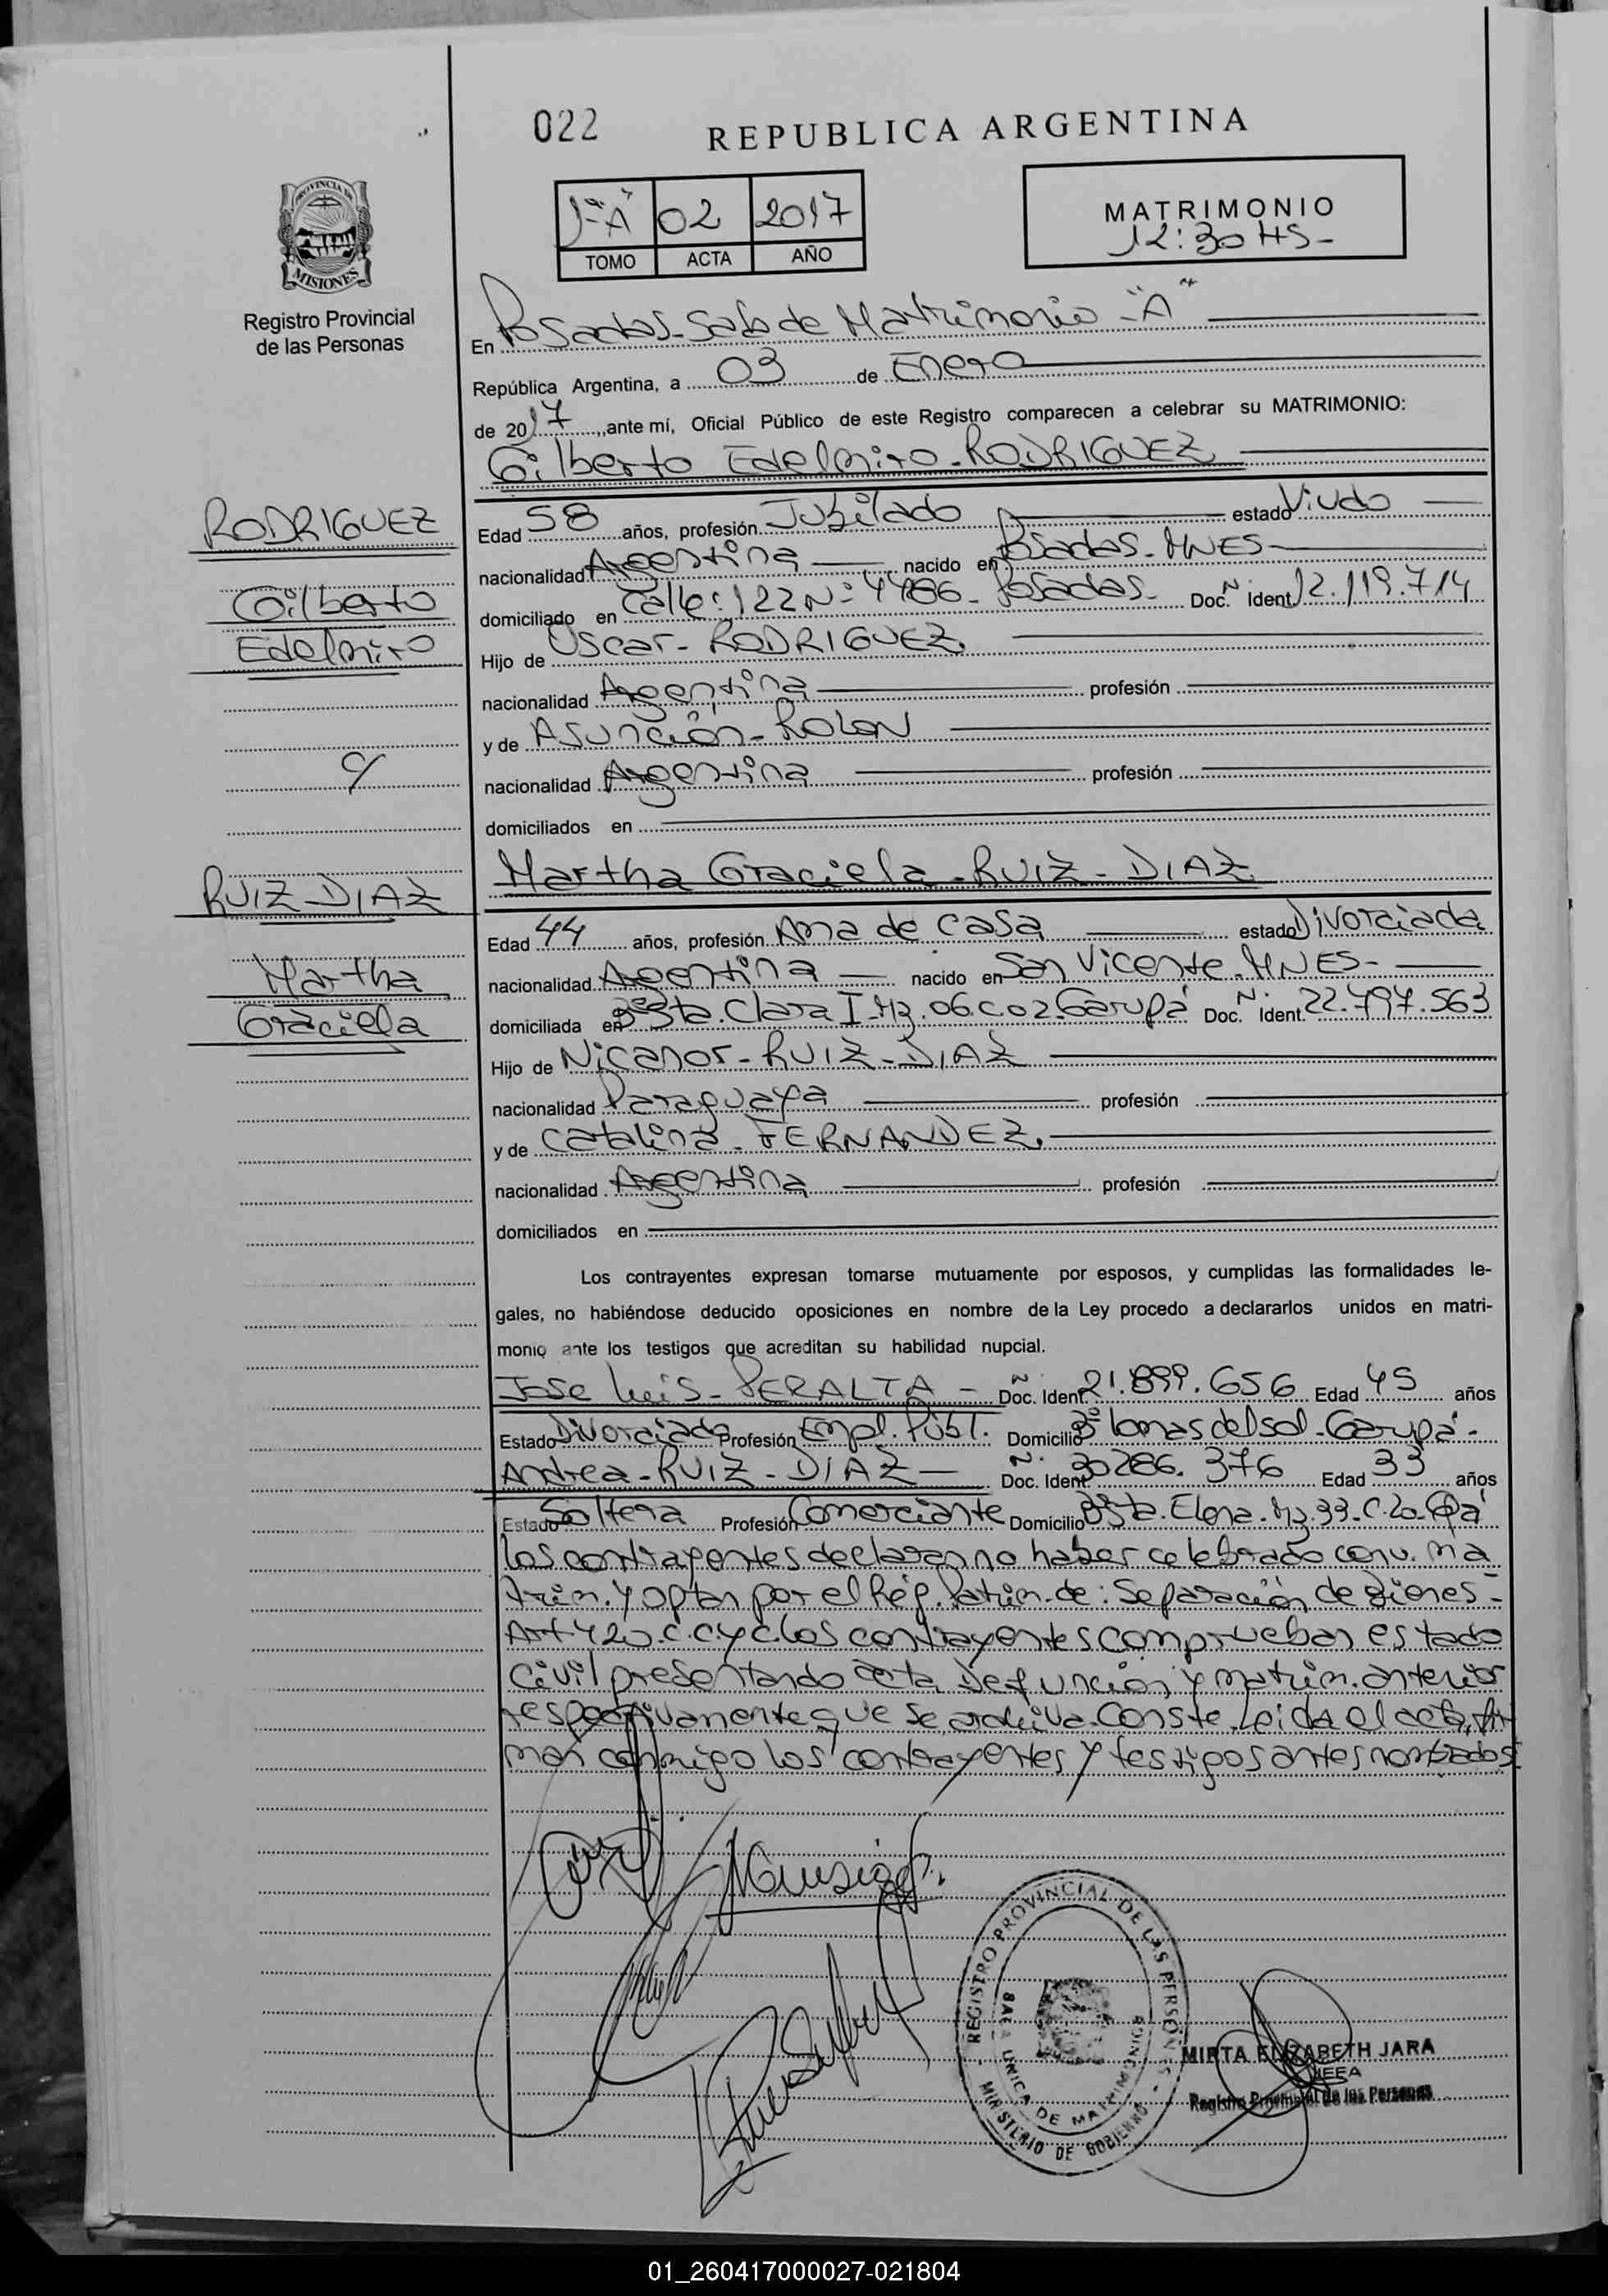 022
REPUBLICA ARGENTINA
PROVINCIA DE
MISIONES
Registro Provincial
de las Personas
1º "A" 02 2017
TOMO ACTA AÑO
MATRIMONIO
12:30 HS-
En Posadas-Sala de Matrimonio-"A"
República Argentina, a 03 de Enero
de 2017, ante mí, Oficial Público de este Registro comparecen a celebrar su MATRIMONIO:
Gilberto Edelmiro-RODRIGUEZ
RODRIGUEZ
Gilberto
Edelmiro
Edad 58 años, profesión Jubilado estado Viudo
nacionalidad Argentina nacido en Posadas-MNES-
domiciliado en Calle:122 Nº 4486-Posadas- Doc. Ident. Nº 12.119.714
Hijo de Oscar-RODRIGUEZ.
nacionalidad Argentina profesión
y de Asunción-ROLON
c/
nacionalidad Argentina profesión
domiciliados en
Martha Graciela-RUIZ-DIAZ
RUIZ-DIAZ
Martha
Graciela
Edad 44 años, profesión Ama de Casa estado Divorciada
nacionalidad Argentina nacido en San Vicente-MNES-
domiciliada en Bº Sta. Clara I-Mz.06.C.02.Garupá Doc. Ident. Nº 22.797.563
Hijo de Nicanor-RUIZ-DIAZ
nacionalidad Paraguaya profesión
y de Catalina-FERNANDEZ.
nacionalidad Argentina profesión
domiciliados en
Los contrayentes expresan tomarse mutuamente por esposos, y cumplidas las formalidades le-
gales, no habiéndose deducido oposiciones en nombre de la Ley procedo a declararlos unidos en matri-
monio ante los testigos que acreditan su habilidad nupcial.
Jose Luis-PERALTA- Doc. Ident. Nº 21.899.656 Edad 45 años
Estado Divorciado Profesión Empl. Públ. Domicilio Bº Lomas del sol-Garupá-
Andrea-RUIZ-DIAZ- Doc. Ident. Nº 30286.376 Edad 33 años
Estado Soltera Profesión Comerciante Domicilio Bº Sta. Elena-Mz.33-C.20-Gpá
los contrayentes declaran no haber celebrado conv. ma
trim. y optan por el Rég. Patrim. de: Separación de Bienes-
Art 420.C.C y C. los contrayentes comprueban estado
Civil presentando acta Defunción y matrim. anterior
respectivamente que se archiva. Conste. Leida el acta, fir
man conmigo los contrayentes y testigos antes nombrados
REGISTRO PROVINCIAL DE LAS PERSONAS
UNICA DE MATRIMONIOS
MINISTERIO DE GOBIERNO
MIRTA ELIZABETH JARA
JEFA
Registro Provincial de las Personas
01_260417000027-021804